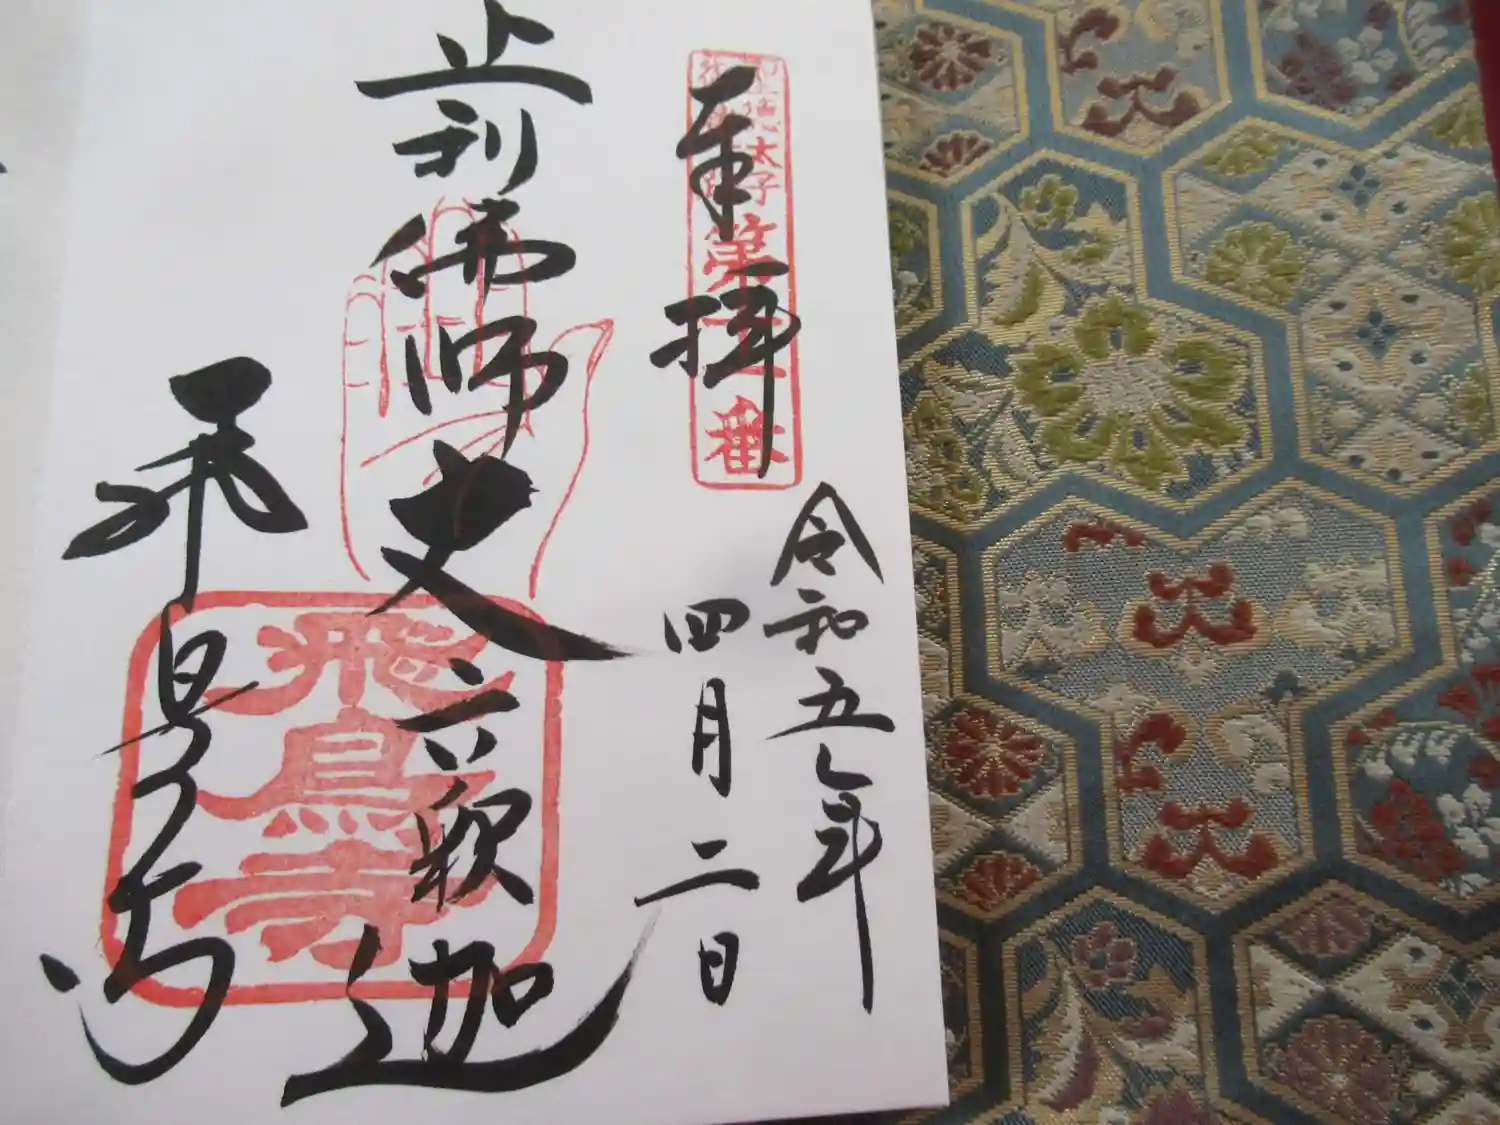 奉拝
聖徳太子
第十一番
令和五年
四月二日
止利佛師
丈六釈迦
飛鳥寺
飛鳥寺